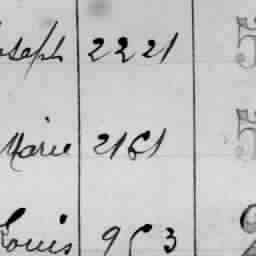 Joseph 2221 5
Marie 2161 5
Louis 953 2